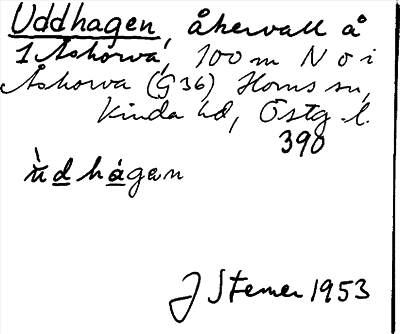 Uddhagen, åkervall å
1 Åshorva, 100 m N o i
Åshorva (G 36) Horns sn,
Kinda hd, Östg. l.
390
ùdhágen
J Stemer 1953